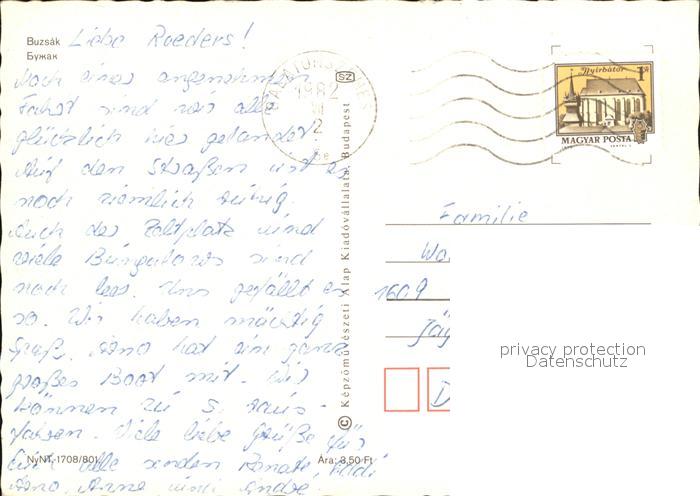 Buzsák
Бужак
Liebe Roeders!
Nach einer angenehmen
Fahrt sind wir alle
glücklich hier gelandet.
Auf den Straßen ist es
noch ziemlich ruhig.
Auch der Zeltplatz und
viele Bungalows sind
noch leer. Uns gefällt es
so. Wir haben mächtig
Spaß. Arno hat ein ganz
großes Boot mit. Wir
können zu 5. raus-
fahren. Viele liebe Grüße für
Euch alle senden Renate,
Arno, Anne und André.
NyNT, 1708/801
Ára: 3,50 Ft
© Képzőművészeti Alap Kiadóvállalata, Budapest
SZ
1982
2
Nyírbátor
1Ft
MAGYAR POSTA
Familie
1609
privacy protection
Datenschutz